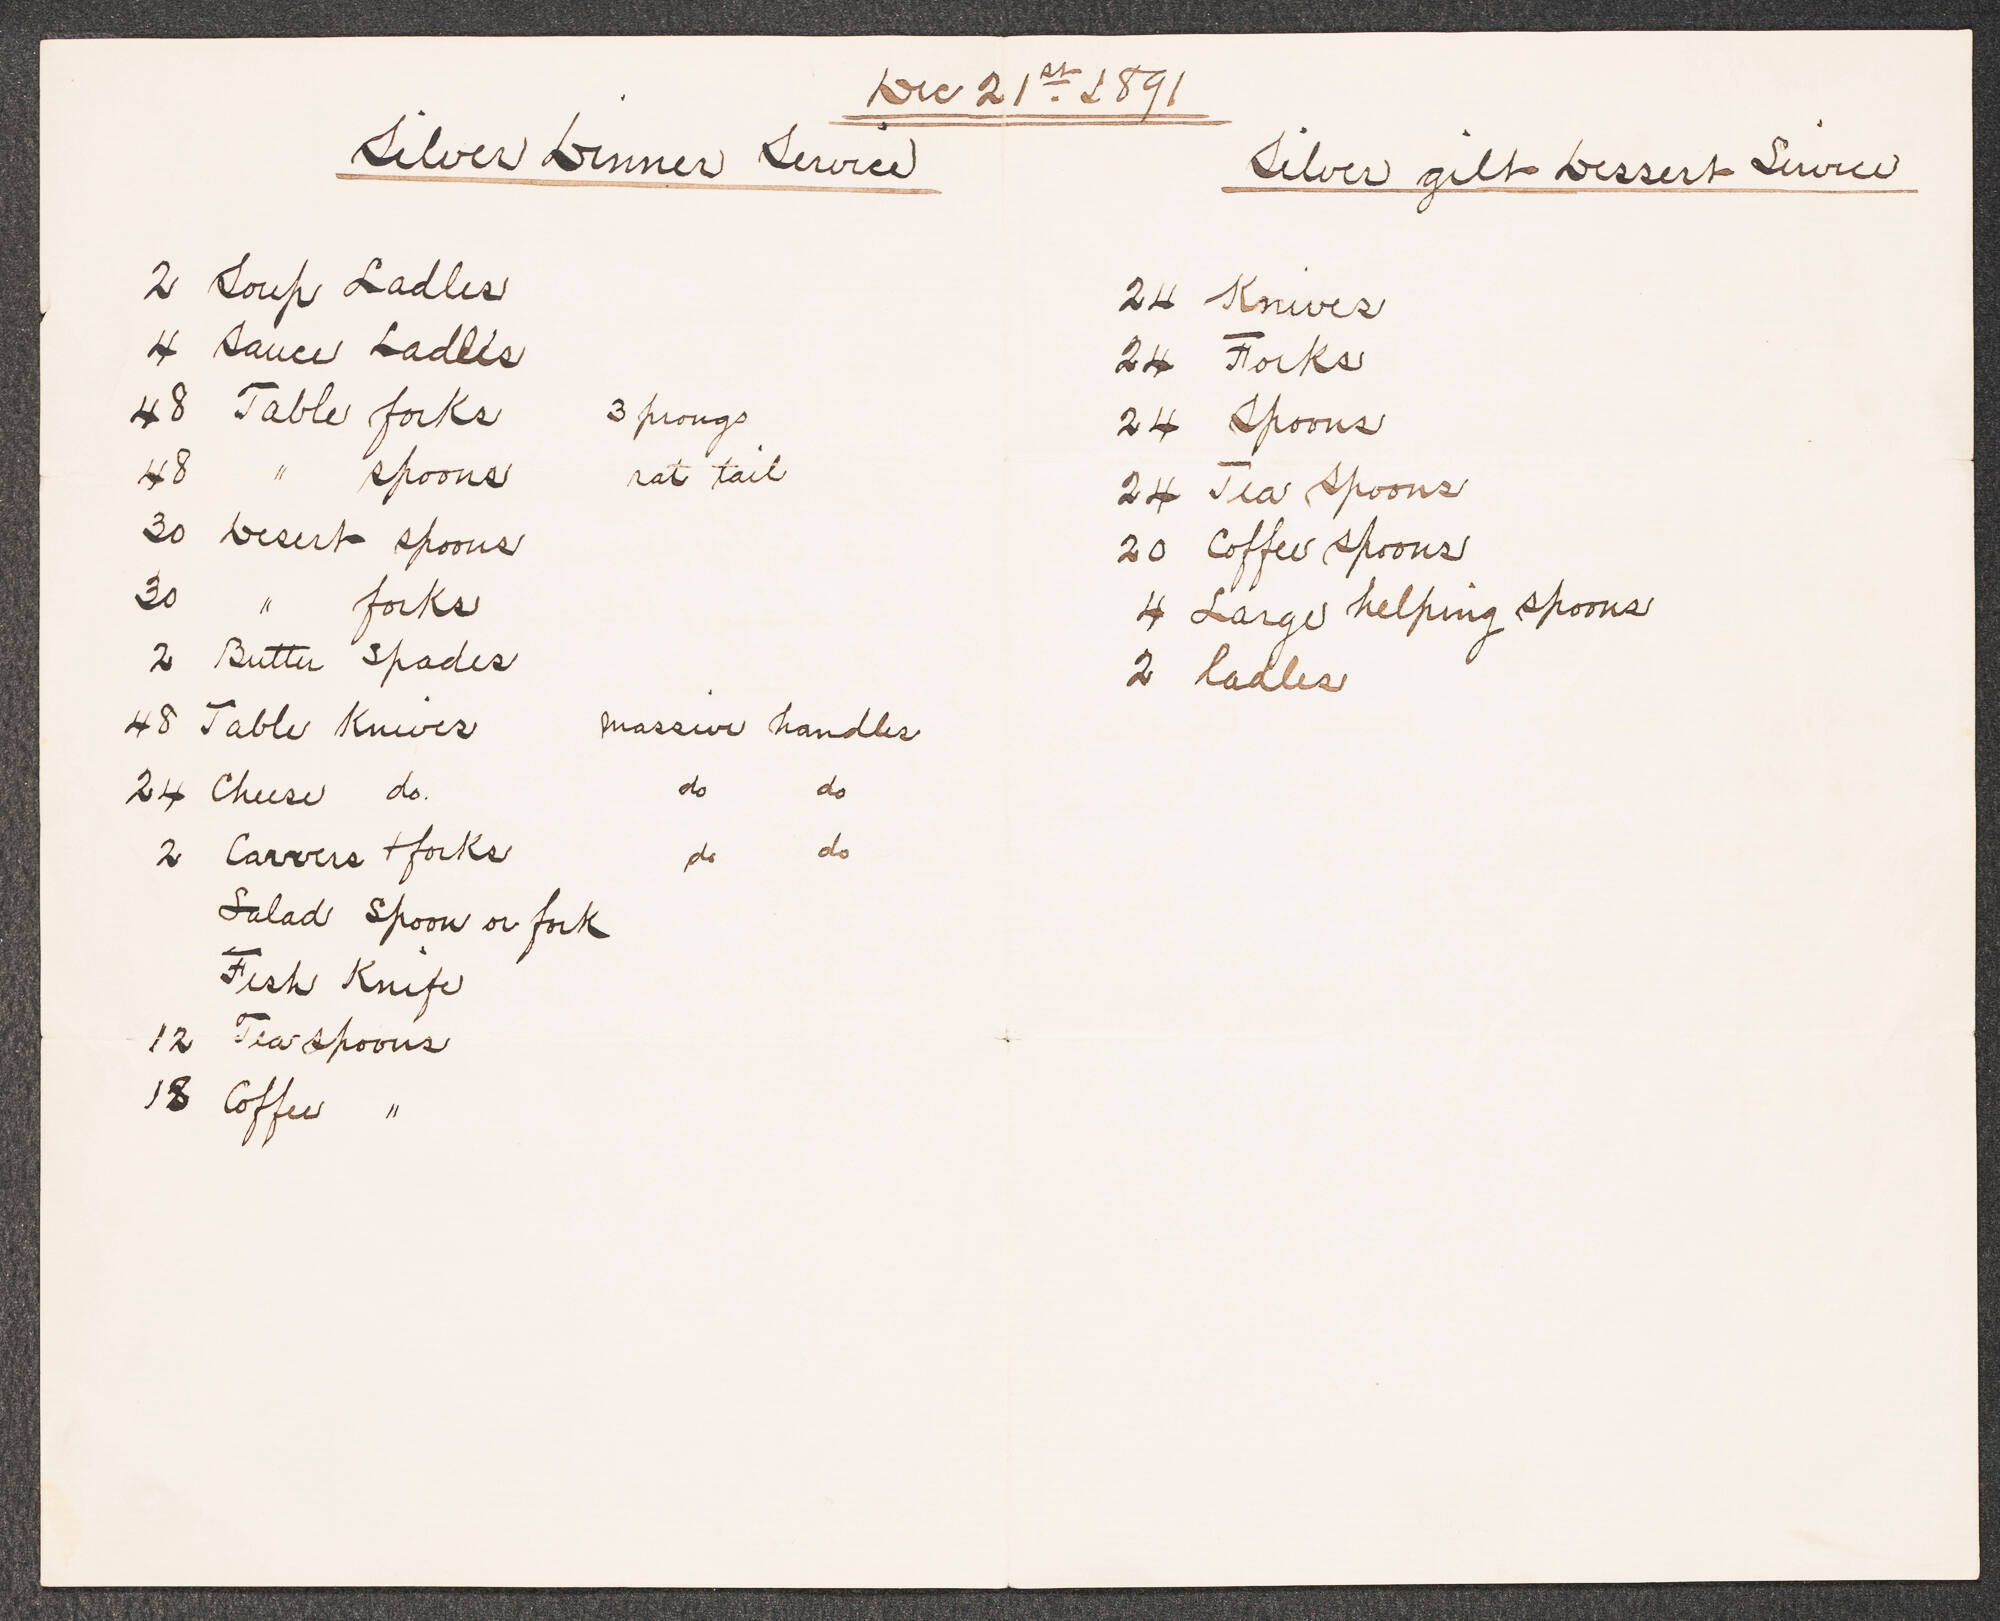 Dec 21st. 1891
Silver Dinner Service
2 Soup Ladles
4 Sauce Ladles
48 Table forks 3 prongs
48 " spoons rat tail
30 Desert spoons
30 " forks
2 Butter Spades
48 Table Knives massive handles
24 Cheese do. do do
2 Carvers + forks do do
Salad Spoon or fork
Fish Knife
12 Tea spoons
18 Coffee "
Silver gilt Dessert Service
24 Knives
24 Forks
24 Spoons
24 Tea Spoons
20 Coffee Spoons
4 Large helping spoons
2 ladles